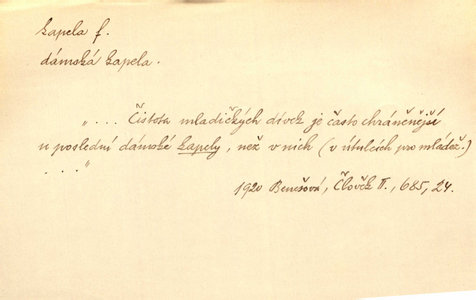 kapela f.
dámská kapela.
„... Čistota mladičkých dívek je často chráněnější
u poslední dámské kapely, než v nich (v útulcích pro mládež.)
..."
1920 Benešová, Člověk II., 685, 24.